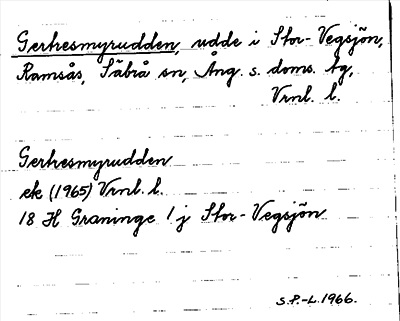 Gertresmyrudden, udde i Stor-Vegsjön,
Ramsås, Säbrå sn, Ång. s. doms. tg,
Vrnl. l.
Gertresmyrudden
ek (1965) Vrnl. l.
18 H Graninge 1 j Stor-Vegsjön
S.P.-L. 1966.